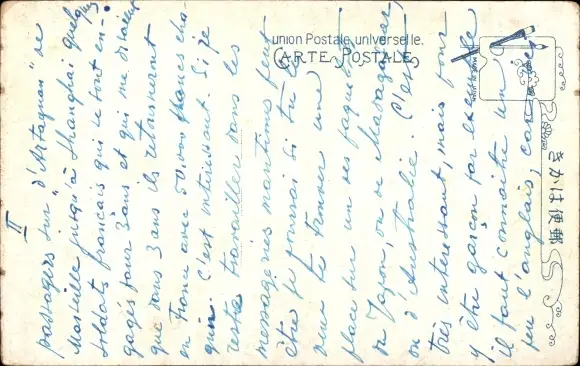 union Postale universelle.
CARTE POSTALE
きがは便郵
II
passagers sur "d'Artagnan" de
Marseille jusqu'à Shanghai quelques
soldats français qui se sont en-
gagés pour 3 ans et qui me disaient
que dans 3 ans ils retourneront
en France avec 50.000 francs cha-
cun. C'est intéressant. Si je
reste travailler dans les
messageries maritimes peut
être je pourrai si tu le
veux te trouver une
place sur un des paquebots
du Japon, ou de Madagascar,
ou d'Australie. C'est
très intéressant, mais pour
y être garçon par exemple
il faut connaître un
peu l'anglais, car